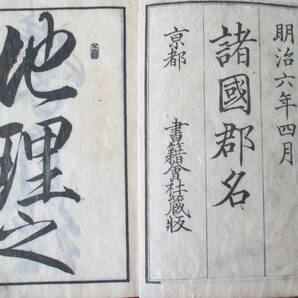 明治六年四月
諸國郡名
京都 書籍會社藏版
地理之